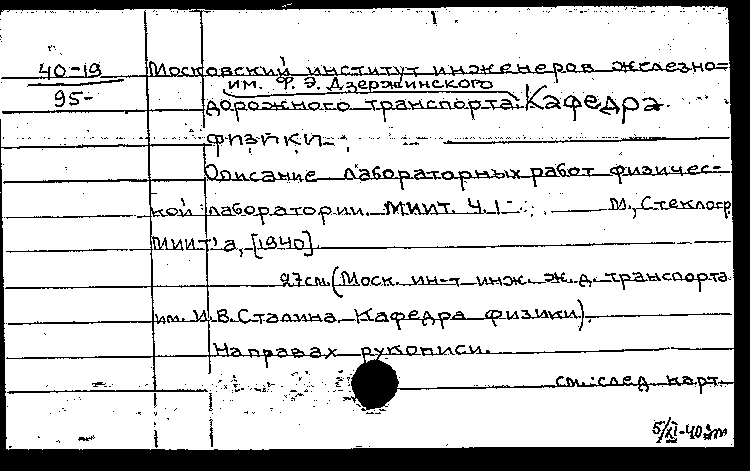 40-19
95-
Московский институт инженеров железно=
им. Ф. Э. Дзержинского
дорожного транспорта. Кафедра
физики.
Описание лабораторных работ физичес-
кой лаборатории МИИТ. Ч. 1 - . М., Стеклогр.
МИИТ'а, [1940].
27см. (Моск. ин-т инж. ж. д. транспорта
им. И. В. Сталина. Кафедра физики).
На правах рукописи.
см. след. карт.
5/XI-40